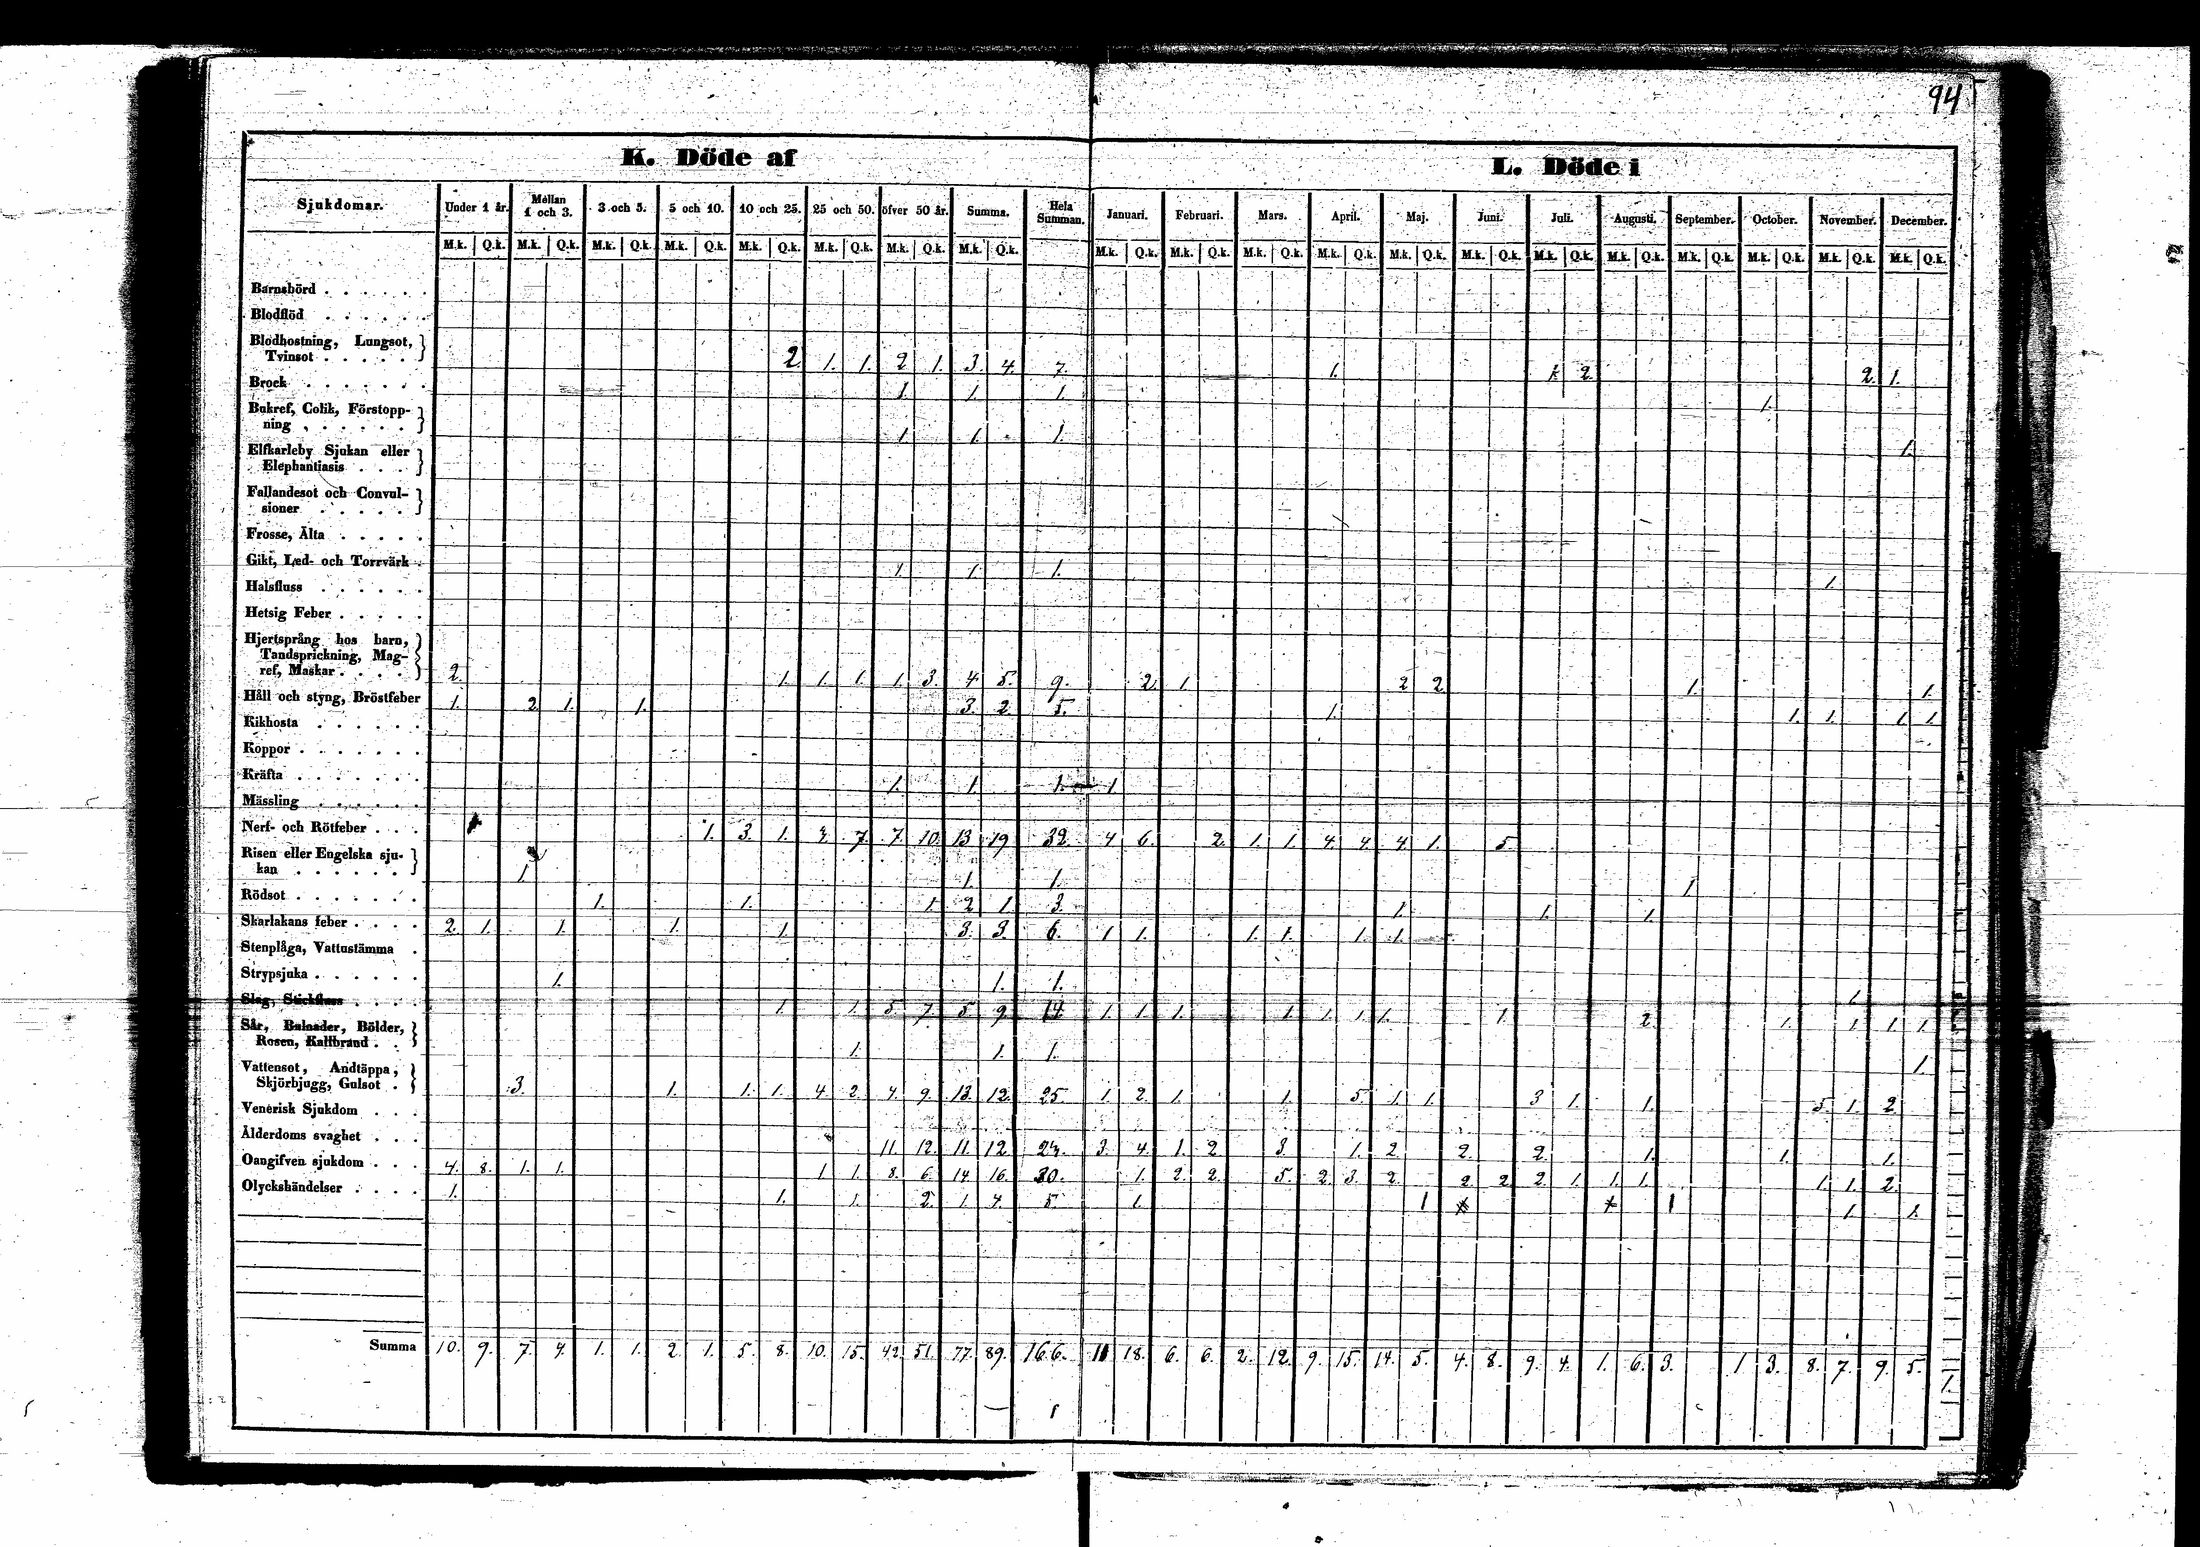 94
K. Döde af
L. Döde i
Sjukdomar. Under 1 år. Mellan 1 och 3. 3 och 5. 5 och 10. 10 och 25. 25 och 50. öfver 50 år. Summa. Hela Summan. Januari. Februari. Mars. April. Maj. Juni. Juli. Augusti. September. October. November. December.
M.k. Q.k. M.k. Q.k. M.k. Q.k. M.k. Q.k. M.k. Q.k. M.k. Q.k. M.k. Q.k. M.k. Q.k. M.k. Q.k. M.k. Q.k. M.k. Q.k. M.k. Q.k. M.k. Q.k. M.k. Q.k. M.k. Q.k. M.k. Q.k. M.k. Q.k. M.k. Q.k. M.k. Q.k. M.k. Q.k.
Barnsbörd . . . . . .
Blodflöd . . . . . .
Blodhostning, Lungsot,
Tvinsot . . . . . 2. 1. 1. 2. 1. 3. 4. 7. 1. 2. 2. 1.
Brock . . . . . . . 1. 1. 1. 1.
Bukref, Colik, Förstopp-
ning . . . . . . 1. 1. 1. 1.
Elfkarleby Sjukan eller
Elephantiasis . . .
Fallandesot och Convul-
sioner . . . . .
Frosse, Älta . . . . .
Gikt, Led- och Torrvärk . 1. 1. 1. 1.
Halsfluss . . . . . .
Hetsig Feber . . . . .
Hjertsprång hos barn,
Tandsprickning, Mag-
ref, Maskar . . . . 2. 1. 1. 1. 1. 3. 4. 5. 9. 2. 1. 2 2. 1. 1.
Håll och styng, Bröstfeber 1. 2. 1. 1. 3. 2. 5. 1. 1. 1. 1. 1.
Kikhosta . . . . . .
Koppor . . . . . . .
Kräfta . . . . . . . 1. 1. 1. 1.
Mässling . . . . . .
Nerf- och Rötfeber . . . 1. 3. 1. 3. 7. 7. 10. 13 19 32. 4 6. 2. 1. 1. 4. 4. 4. 1. 5.
Risen eller Engelska sju-
kan . . . . . . 1. 1. 1. 1
Rödsot . . . . . . . 1. 1. 1. 2. 1. 3. 1. 1. 1.
Skarlakans feber . . . . 2. 1. 1. 1. 1. 3. 3. 6. 1. 1. 1. 1. 1. 1.
Stenplåga, Vattustämma .
Strypsjuka . . . . . . 1. 1. 1. 1.
Slag, Stickfluss . . . . 1. 1. 5. 7. 5. 9. 14. 1. 1. 1. 1. 1. 1. 1. 1. 2. 1. 1. 1. 1.
Sår, Bulnader, Bölder,
Rosen, Kallbrand . . 1. 1. 1. 1.
Vattensot, Andtäppa,
Skjörbjugg, Gulsot . 3. 1. 1. 1. 4. 2. 4. 9. 13. 12. 25. 1. 2. 1. 1. 5. 1. 1. 3 1. 1. 5. 1. 2.
Venerisk Sjukdom . . .
Ålderdoms svaghet . . . 11. 12. 11. 12. 23. 3. 4. 1. 2. 3. 1. 2 2. 2. 1. 1. 1.
Oangifven sjukdom . . . 4. 8. 1. 1. 1 1. 8. 6. 14. 16. 30. 1. 2. 2. 5. 2. 3. 2. 2. 2 2 1. 1. 1. 1. 1. 2.
Olyckshändelser . . . . 1. 1. 1. 2. 1. 4. 5. 1. 1 1 1. 1.
Summa 10. 9. 7. 4. 1. 1. 2. 1. 5. 8. 10. 15. 42. 51. 77. 89. 166. 11 18. 6. 6. 2. 12. 9. 15. 14. 5. 4. 8. 9. 4. 1. 6. 3. 1 3. 8. 7. 9. 5.